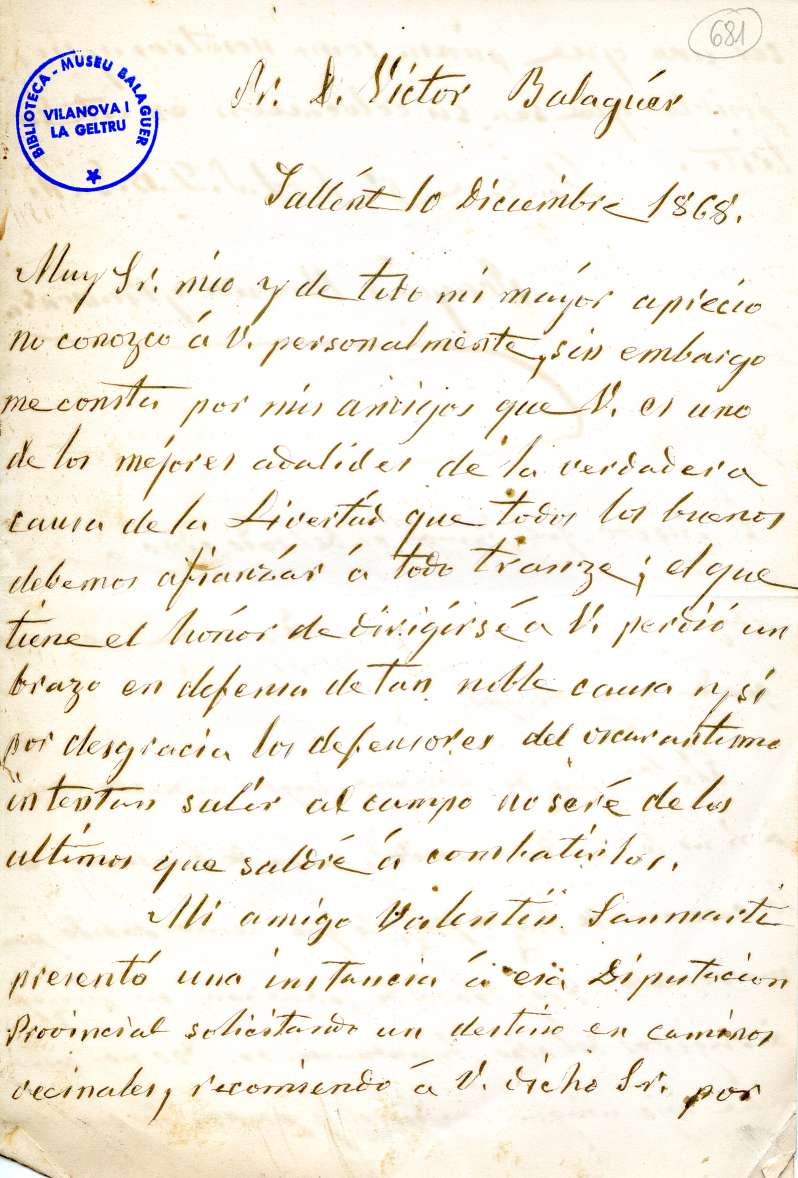 681
BIBLIOTECA - MUSEU BALAGUER
VILANOVA I
LA GELTRU
Sr. D. Víctor Balaguér
Sallént 10 Diciembre 1868.
Muy Sr. mio y de todo mi mayór aprécio
no conozco á V. personalménte, sin embargo
me consta por mis amigos que V. es uno
de los mejores adalides de la verdadera
causa de la Livertád que todos los buenos
debemos afianzár á todo tranze; el que
tiene el honór de dirigírsé á V. perdió un
brazo en defensa de tan noble causa y si
por desgracia los defensores del oscurantismo
intentan salír al campo no seré de los
ultímos que saldré á combatírlos.
Mi amigo Valentin Sanmartí
presentó una instancia á esa Diputacion
Provincial solicitando un destino en caminos
vecinales, recomiendo á V. dicho Sr. por